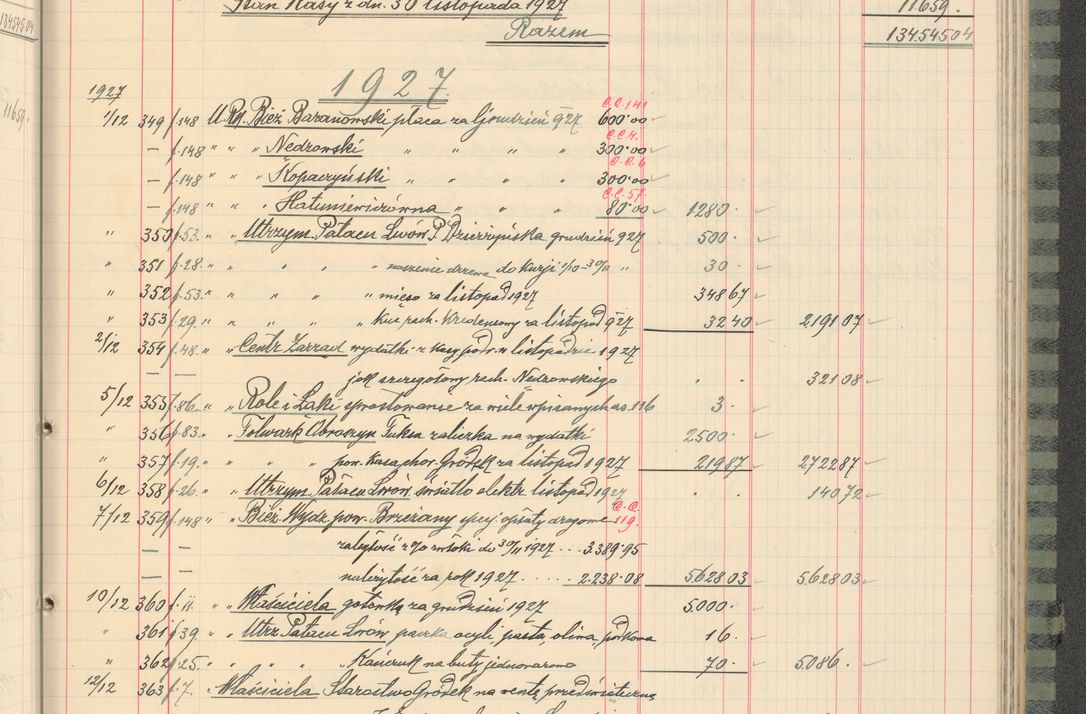 134545 04
Stan Kasy z dn. 30 listopada 1927 11659.
11659.
Razem 134545 04
1927
1927
C.C. 141
1/12 349 f. 148 U Rch. Bież Baranowski płaca za Grudzień 927 600·00
C.C. 4.
— f. 148 " " " Nedzowski " " " " 300·00
C.C. 6
— f. 148 " " " Kopaczyński " " " " 300·00
C.C. 57.
— f. 148 " " " Hatuniewiczówna " " " 80·00 1280·
" 350 f. 53. " " Utrzym. Pałacu Lwów P Dzierżyńska grudzień 927 500·
" 351 f. 28. " " " " " noszenie drzewa do Kurji 1/10 - 30/11 " 30·
" 352 f. 53. " " " " " mięso za listopad 1927 348 67
" 353 f. 29. " " " " " rach. Kredensowy za listopad 927 32 40 2191 07
2/12 354 f. 48. " " Centr Zarząd wydatki z Kasy podr. w listopadzie 1927
— — jak szczegółowy rach. Nedzowskiego · · 321 08
5/12 355 f. 86. " " Role i Łąki sprostowanie za wiele wpisanych as. 116 3·
" 356 f. 83. " " Folwark Obroszyn Fuksa zaliczka na wydatki 2500·
" 357 f. 19. " " " " pow. Kasa chor. Gródek za listopad 1927 219 87 2722 87
6/12 358 f. 26. " " Utrzym. Pałacu Lwów światło elektr listopad 1927 · · 140 72
C.C.
7/12 359 f. 148 " " Bież. Wydz. pow. Brzeżany spec. opłaty drogowe 119.
— — zaległość z % zwłoki do 30/11 1927 ... 3.389·95
— — należytość za rok 1927 ..... 2.238·08 5628 03 5.628 03
10/12 360 f. 11. " " Właściciela gotówkę za grudzień 1927 5.000·
" 361 f. 39. " " Utrz Pałacu Lwów paczka ocyli, pasta, oliwa, podkowa 16·
" 362 f. 25. " " " " " Kańczuk na buty jednorazowo 70· 5.086·
12/12 363 f. 7. " Właściciela Starostwo Gródek na rentę przedświąteczną